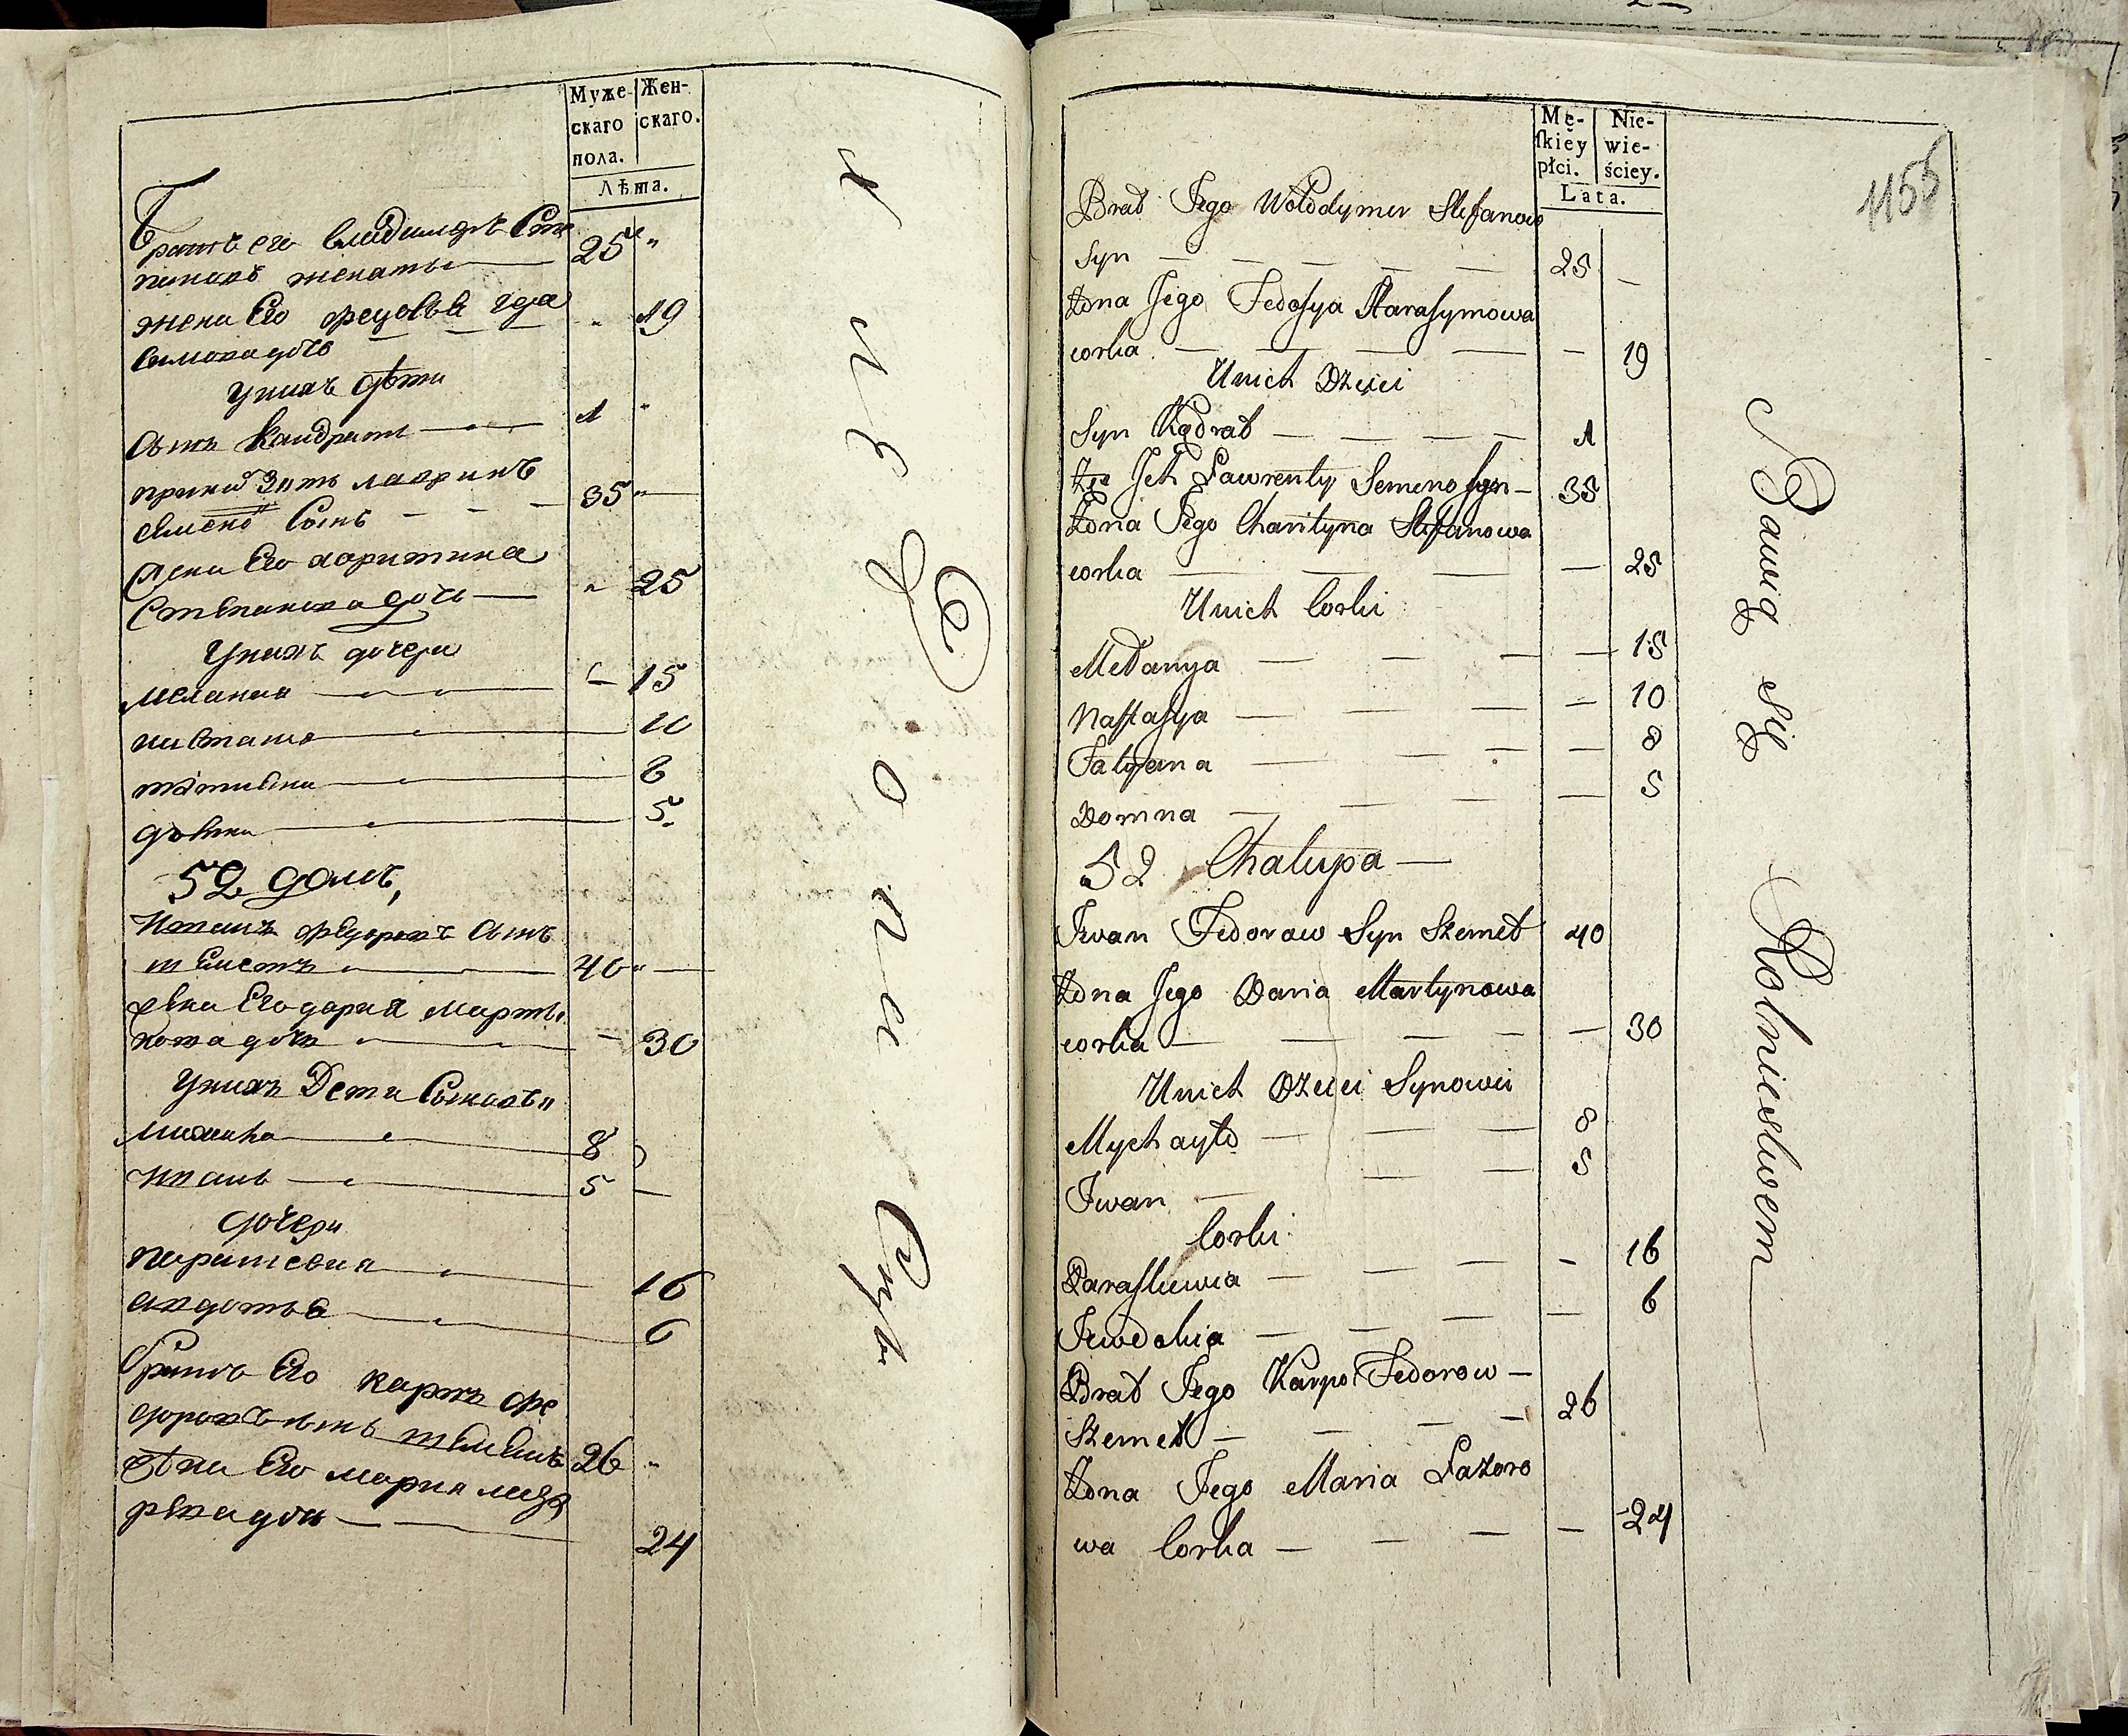 Муже-
скаго
пола.
Жен-
скаго.
Лѣта.
братъ его владимиръ Сте
пановъ женатъ 25 "
жена Его федосья гера
симова дочь " 19
у нихъ дѣти
сынъ Кондратъ 1 "
зять лавринъ
семено Сынъ 35 "
жена Его харитина
Степанова дочь " 25
у нихъ дочери
мелания 15
настасия 10
татиана 8
домна 5
52 домъ,
Иванъ федоровъ сынъ
шеметъ 40 "
жена Его дария марты
нова дочь 30
у нихъ Дети Сыновья
михайла 8
иванъ 5
дочери
парасковия 16
авдотья 6
братъ Его карпъ фе
доровъ сынъ шеметъ 26 "
жена Его мария лаза
рева дочь 24
Mę-
skiey
płci.
Nie-
wie-
ściey.
Lata.
1155
Brat Jego Wołodymer Stefanow
Syn — — — — — 25 —
Żona Jego Fedosya Harasymowa
corka — — — — — 19
U nich Dzieci
Syn Kądrat — — — — 1
Ziec Jch Ławrenty Semeno syn — 35
Żona Jego Charityna Stefanowa
corka — — — — 25
U nich Corki
Mełanya — — — — 15
Nastasya — — — — 10
Tatyana — — — 8
Domna — — — — 5
52 Chalupa —
Jwan Fedorow Syn Szemet 40
Żona Jego Daria Martynowa
corka — — — — — 30
U nich Dzieci Synowie
Mychayło — — — 8
Jwan — — 5
Corki
Paraskiewia — — — — 16
Jewdokia — — — — 6
Brat Jego Karpo Fedorow —
Szemet — — — — 26
Żona Jego Maria Łazoro
wa Corka — — — — 24
Bawią się Rolnictwem